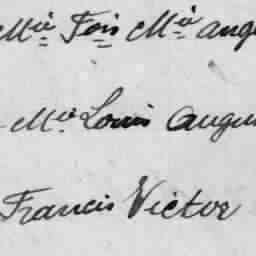 Mie Fois Mie aug
Mie Louis Augu
Francis Victor